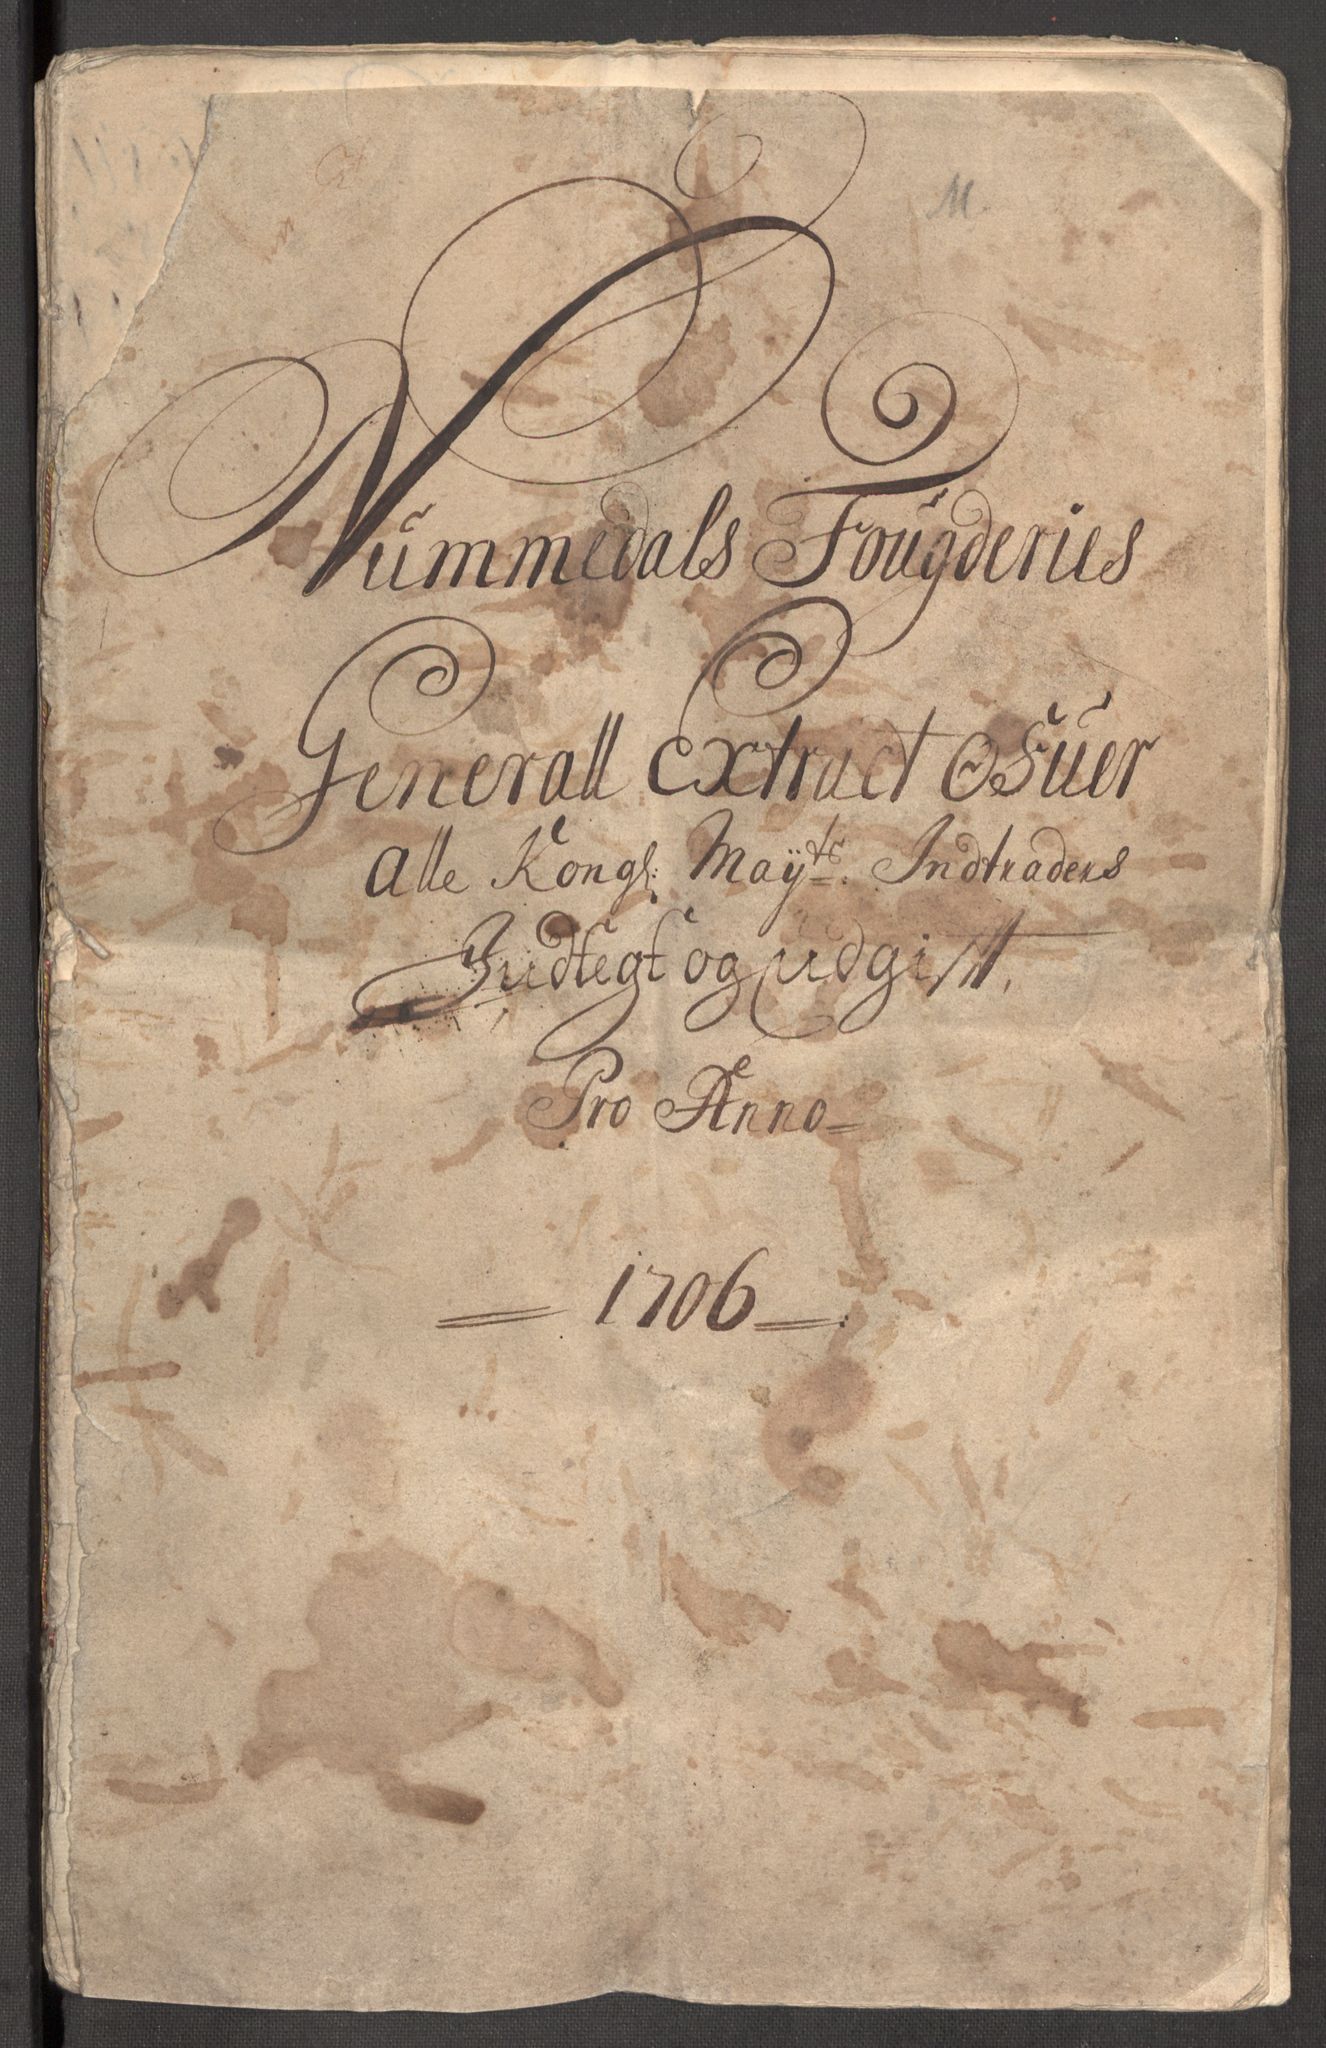 M.
Nummedals Fougderies
Generall Extract Ofuer
Alle Kongl: Maÿts. Indtraders
Indtegt og udgifft,
Pro Anno
1706